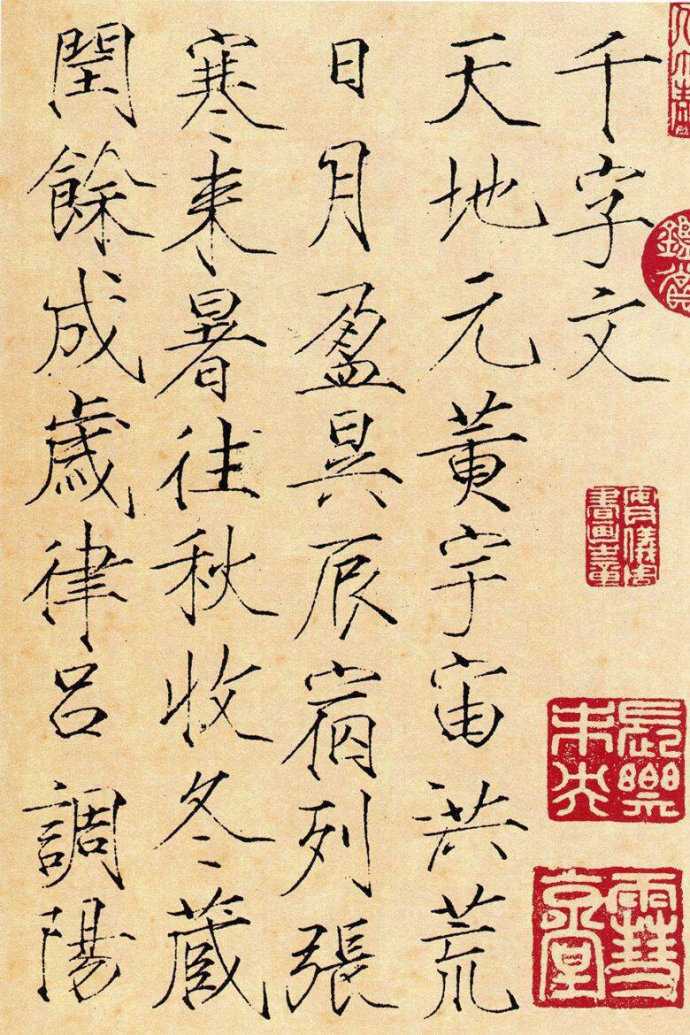 千字文
天地元黄宇宙洪荒
日月盈昃辰宿列張
寒来暑往秋收冬蔵
閏餘成歲律呂調陽
鑑賞
長樂未央